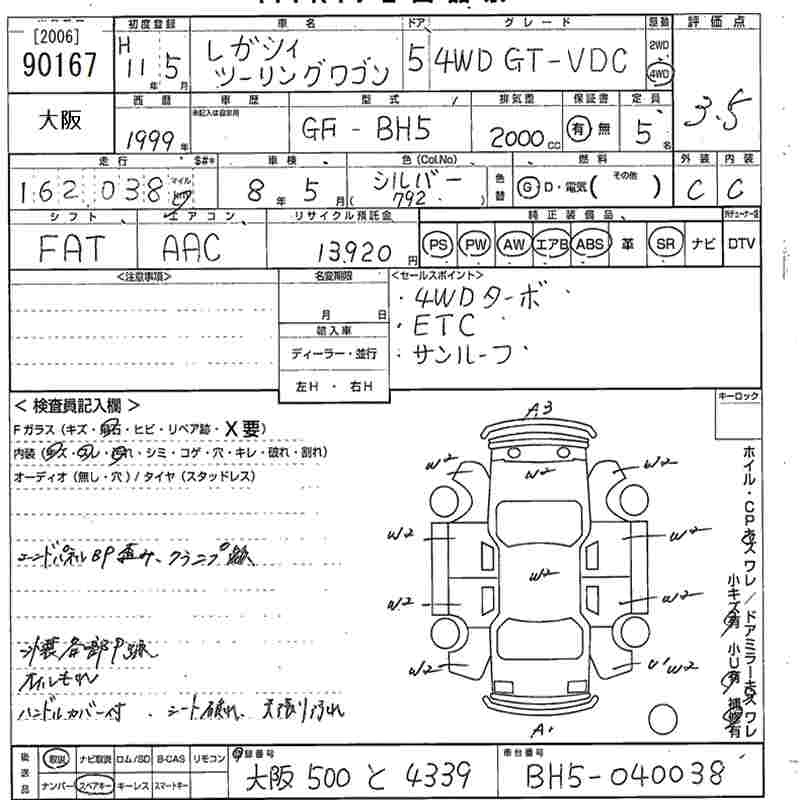 [2006]
90167
初度登録
H
11年 5月
車名
レガシィ
ツーリングワゴン
ドア
5
グレード
4WD GT-VDC
駆動
2WD
4WD
評価点
3.5
大阪
西暦
1999年
車歴
未記入は自家用
型式
GF-BH5
排気量
2000cc
保証書
有 無
定員
5名
走行
$#*
162,038
マイル
km
車検
8年 5月
色(Col.No)
シルバー
( 792 )
色替
燃料
G D・電気( その他 )
外装
C
内装
C
シフト
FAT
エアコン
AAC
リサイクル預託金
13,920円
純正装備品
PS PW AW エアB ABS 革 SR ナビ
DTV
<注意事項>
名変期限
月 日
輸入車
ディーラー・並行
左H ・ 右H
<セールスポイント>
・4WDターボ
・ETC
・サンルーフ
<検査員記入欄>
Fガラス(キズ・飛石・ヒビ・リペア跡・X要)
内装(キズ・スレ・汚れ・シミ・コゲ・穴・キレ・破れ・割れ)
オーディオ(無し・穴)/タイヤ(スタッドレス)
エンドパネルBP歪み、クランプ跡
外装各部P跡
オイルモレ
ハンドルカバー付 、シート破れ、天張り汚れ
キーロック
A3
W2 W2 W2
W2 W2
W2
W2 W2
W2 U1 W2
A1
ホイル・CPキズ ワレ / ドアミラーキズ ワレ
小キズ有 小U有 補修有
後送品
取説 ナビ取説 ロム/SD B-CAS リモコン
ナンバー スペアキー キーレス スマートキー
登録番号
大阪 500 と 4339
車台番号
BH5-040038